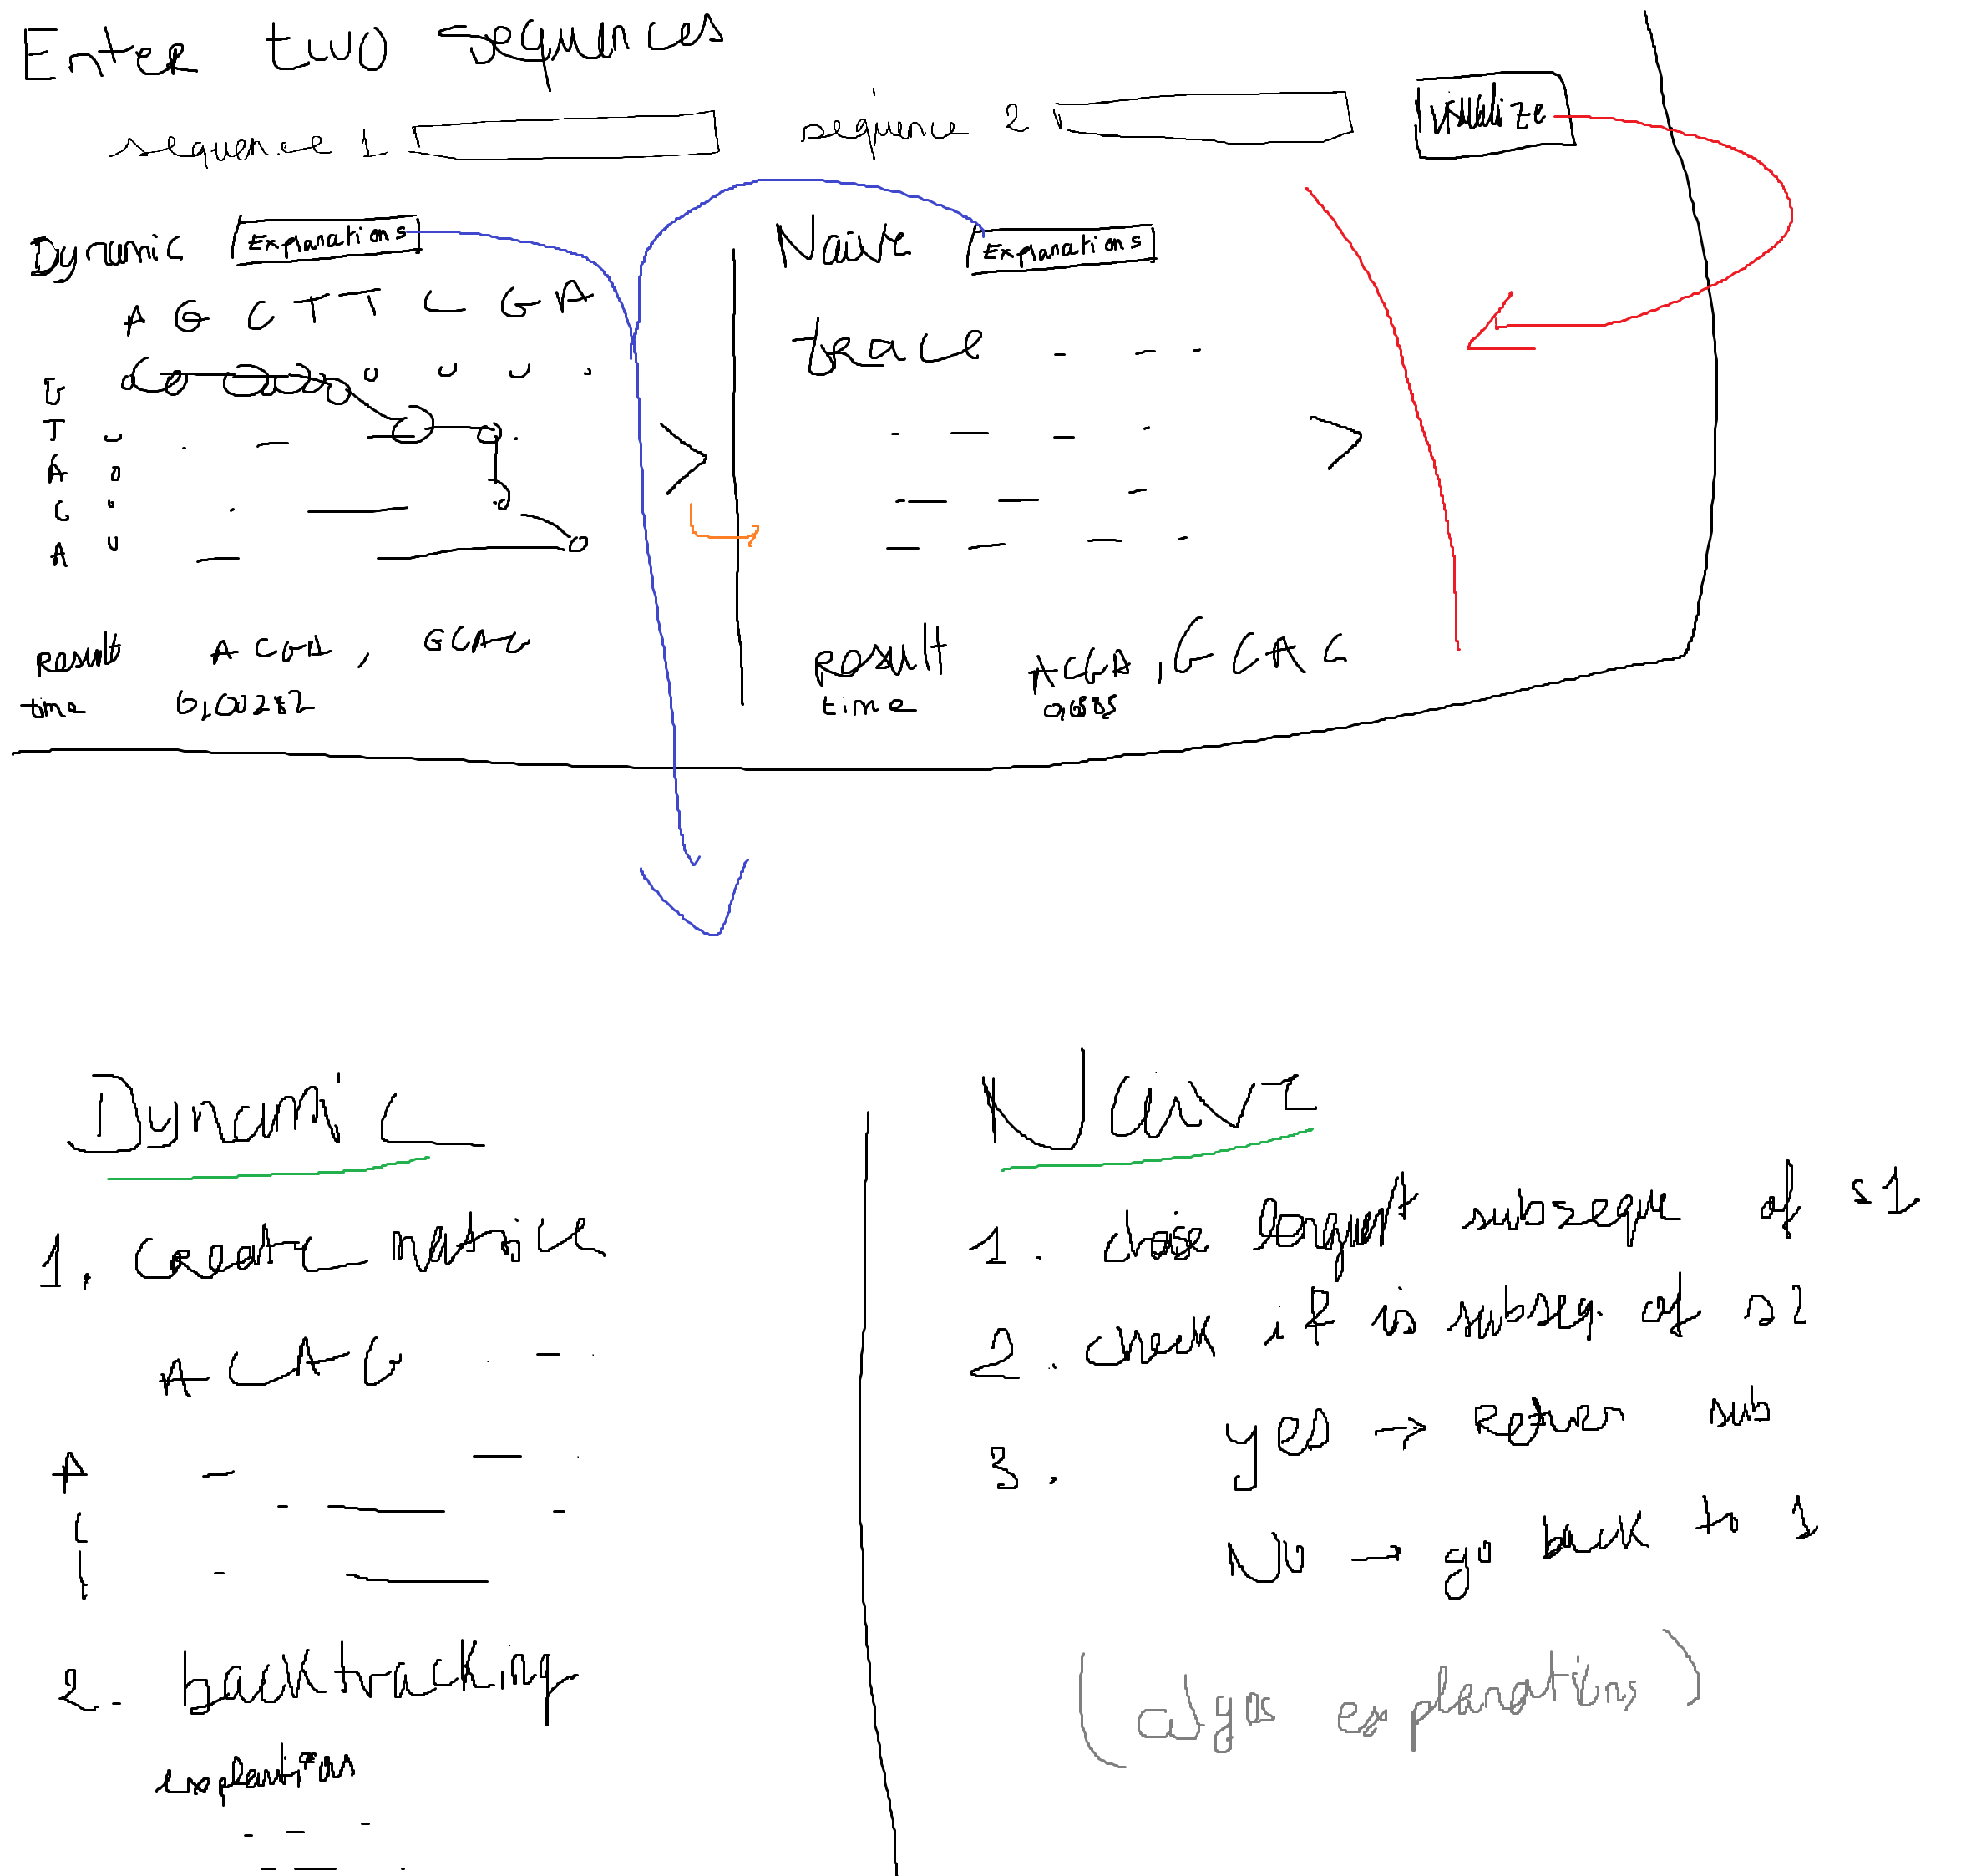 Enter two sequences
sequence 1 sequence 2 visualize
Dynamic Explanations
A G C T T C G A
G
T
A
C
A
Result ACGA, GCAG
time 0,00282
Naive Explanations
trace
>
>
Result ACGA, GCAC
time
Dynamic
1. Create matrice
A C A G
A
C
2. backtracking
explantions
Naive
1. choise longuest subseque of s1
2. check if is subseq. of s2
3. yes → Return sub
No → go back to 1
(algos explanations)